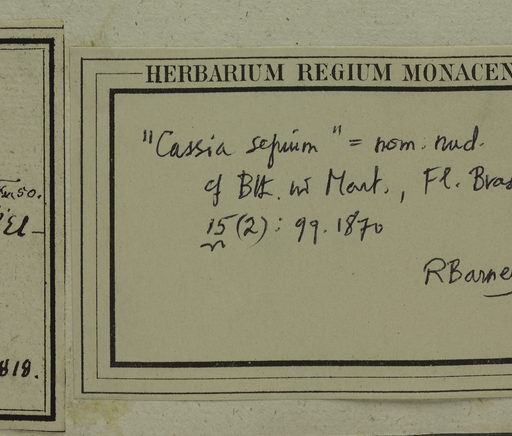 HERBARIUM REGIUM MONACEN
"Cassia sepium" = nom. nud.
cf Bth. in Mart., Fl. Bras
15(2): 99. 1870
RBarne
50.
818.